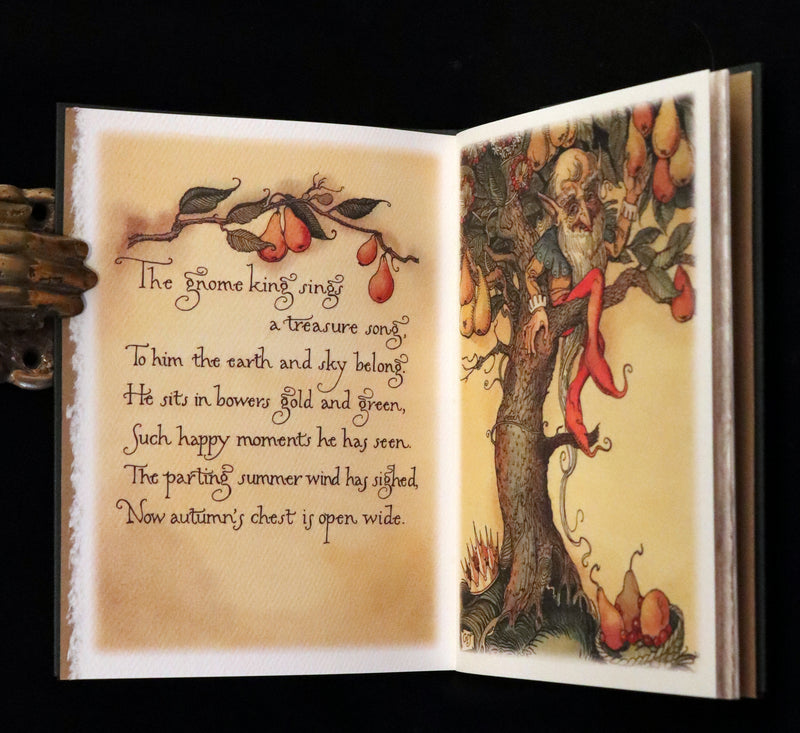 The gnome king sings
a treasure song,
To him the earth and sky belong.
He sits in bowers gold and green,
Such happy moments he has seen.
The parting summer wind has sighed,
Now autumn's chest is open wide.